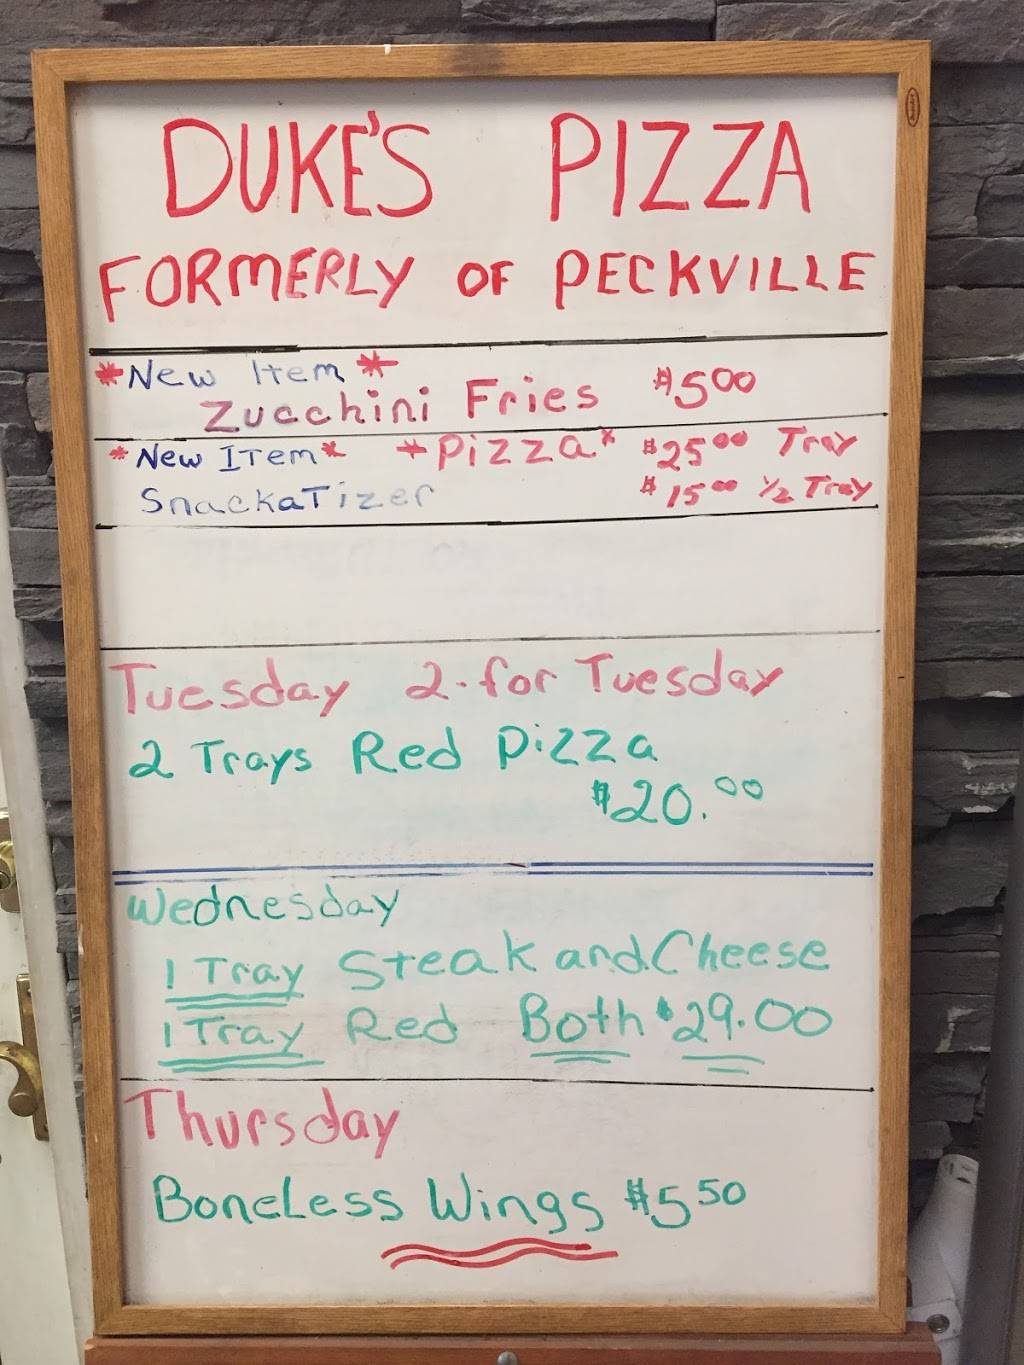 DUKE'S PIZZA
FORMERLY OF PECKVILLE
*New Item*
Zucchini Fries $5.00
*New ITem* *Pizza* $25.00 Tray
SnackaTizer $15.00 1/2 Tray
Tuesday 2-for Tuesday
2 Trays Red Pizza
$20.00
Wednesday
1 Tray Steak and Cheese
1 Tray Red Both $29.00
Thursday
BoneLess Wings $5.50